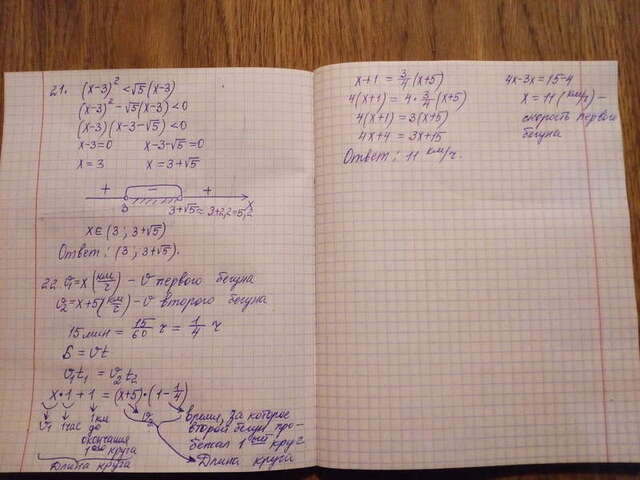 21. (x-3)² < √5 (x-3)
(x-3)² - √5 (x-3) < 0
(x-3)(x-3-√5) < 0
x-3=0 x-3-√5=0
x=3 x=3+√5
+ - +
3 3+√5 ≈ 3+2,2=5,2 x
x∈ (3 ; 3+√5)
Ответ: (3 ; 3+√5).
22. v₁=x (км/ч) - v первого бегуна
v₂=x+5 (км/ч) - v второго бегуна
15 мин = 15/60 ч = 1/4 ч
S = vt
v₁t₁ = v₂t₂
x·1+1 = (x+5)·(1-1/4)
v₁ 1 час 1 км до окончания 1ого круга
Длина круга
v₂ время, за которое второй бегун пробежал 1ый круг
Длина круга
x+1 = 3/4 (x+5)
4(x+1) = 4·3/4 (x+5)
4(x+1) = 3(x+5)
4x+4 = 3x+15
Ответ: 11 км/ч.
4x-3x=15-4
x = 11 (км/ч) -
скорость первого
бегуна